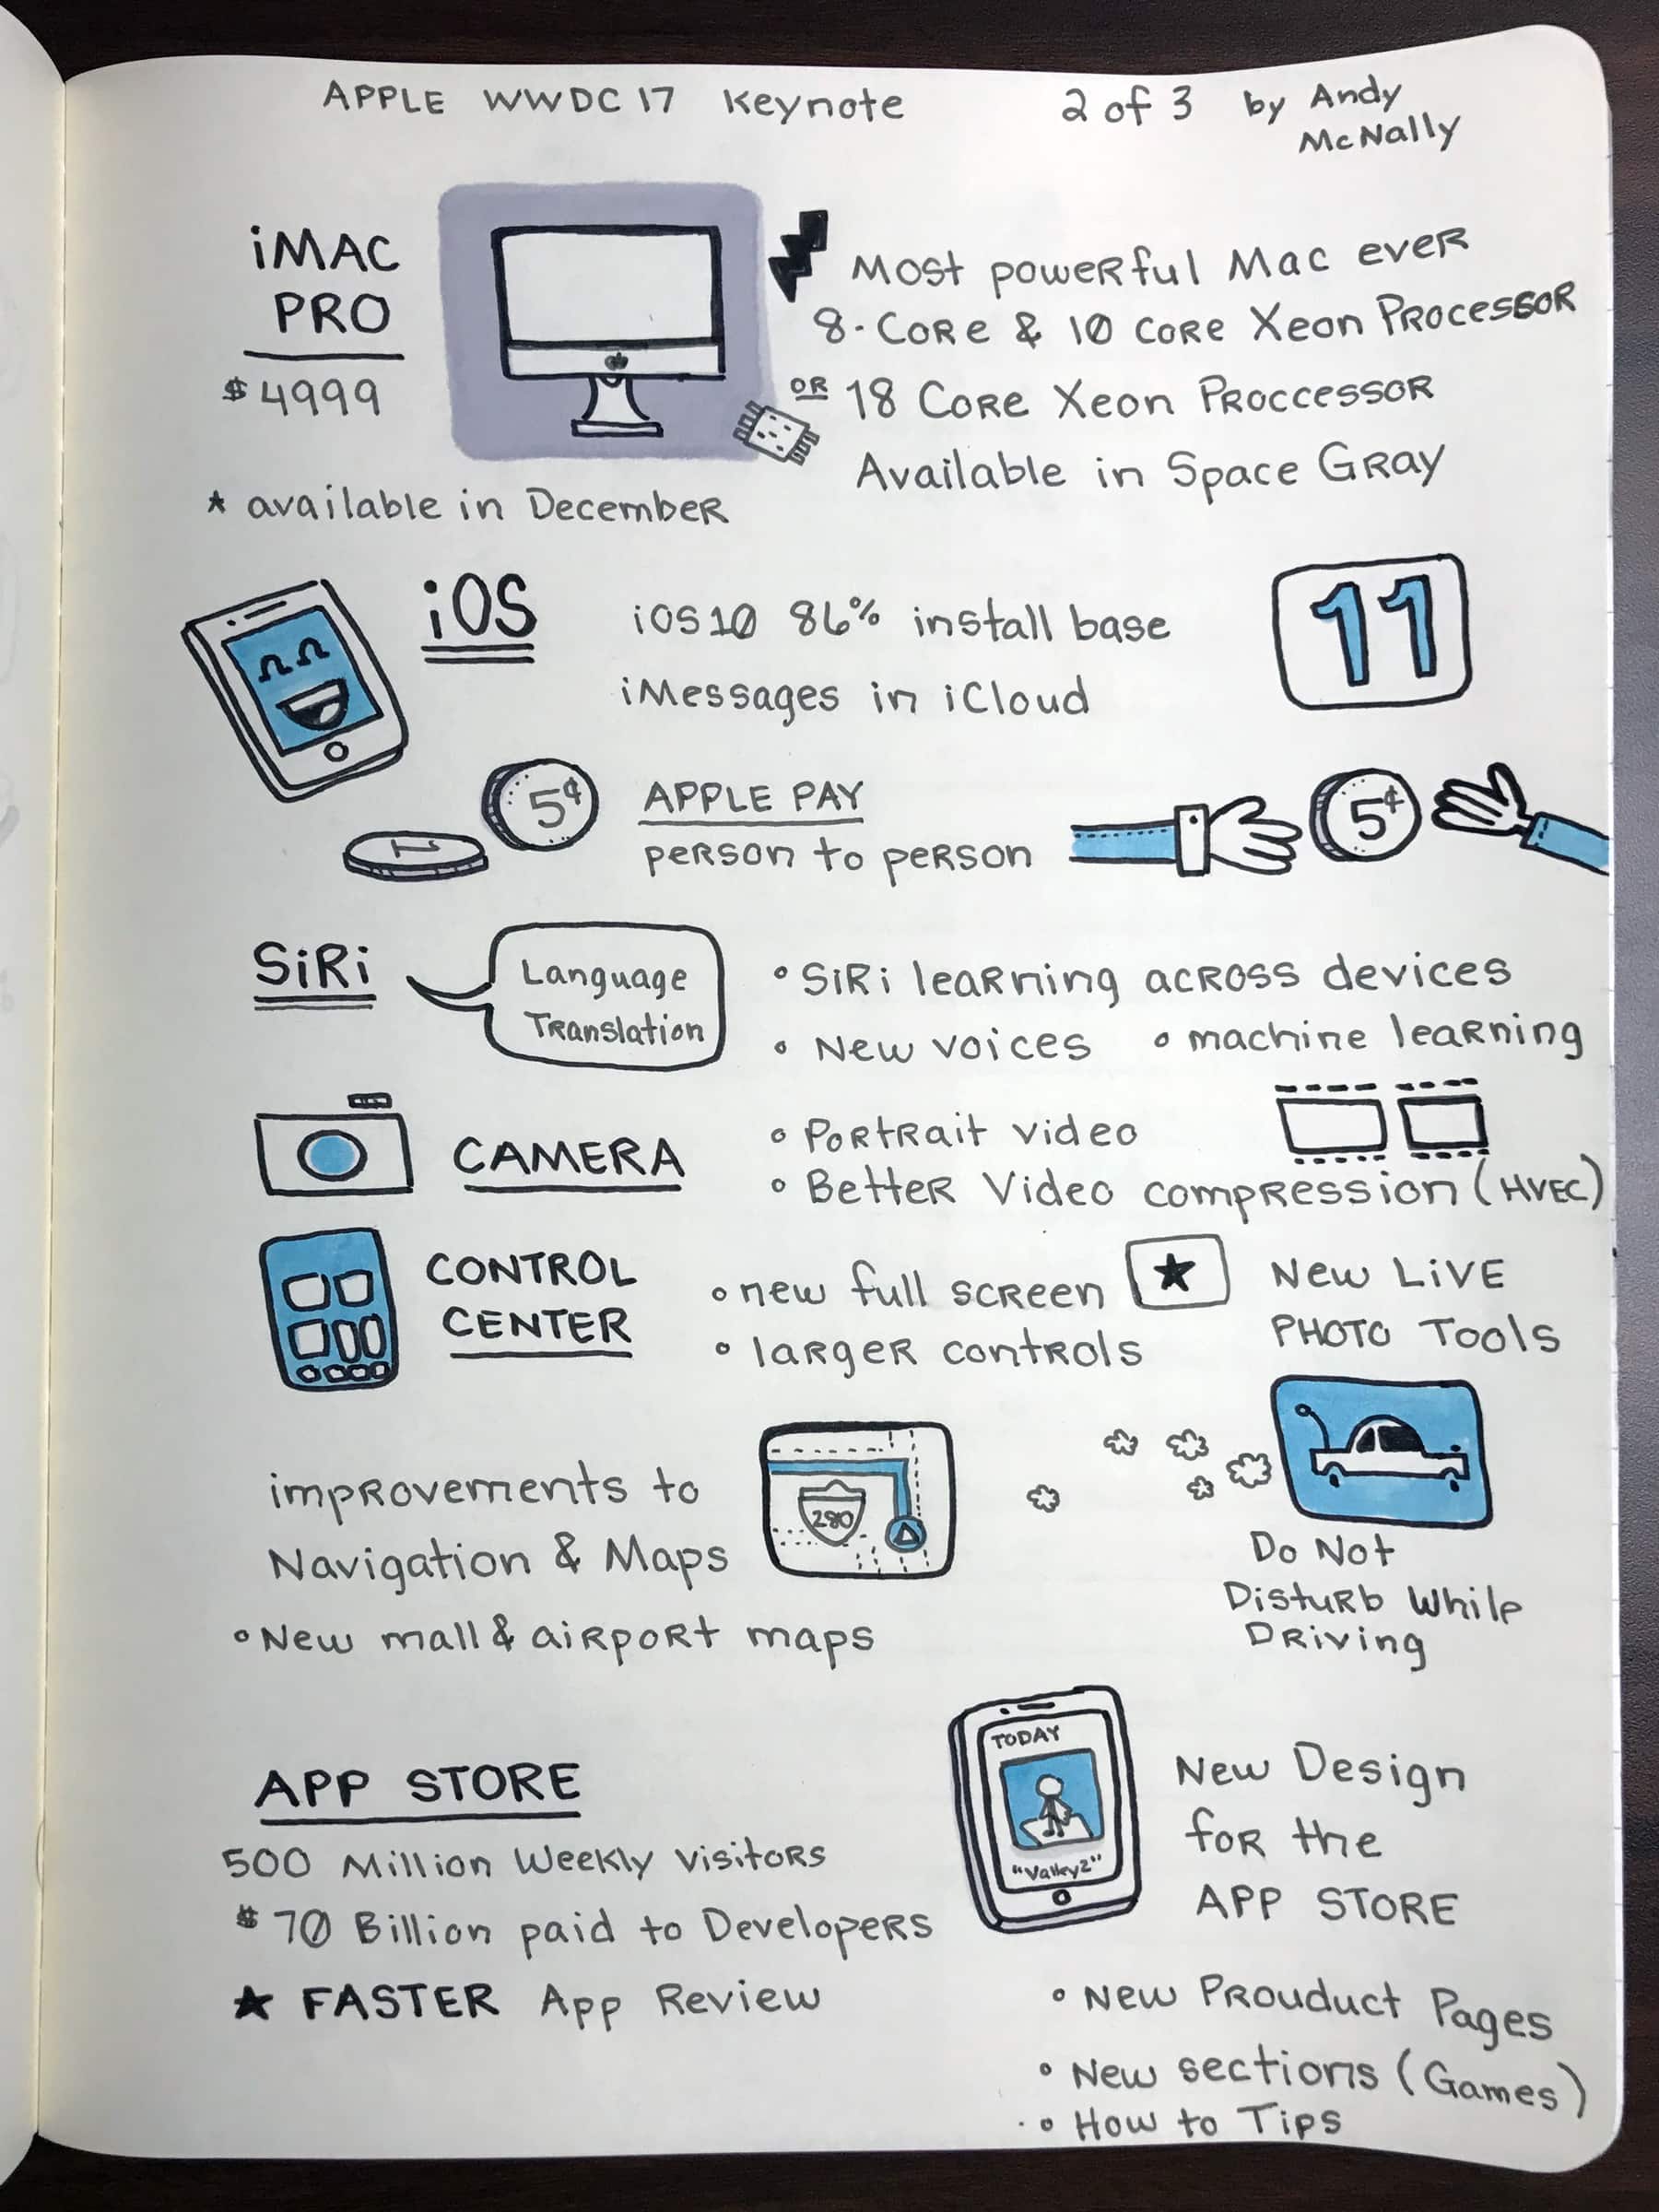 APPLE WWDC 17 Keynote 2 of 3 by Andy McNally
iMAC
PRO
$4999
* available in December
Most powerful Mac ever
8-Core & 10 Core Xeon Processor
OR 18 Core Xeon Proccessor
Available in Space Gray
iOS
iOS 10 86% install base
iMessages in iCloud
11
5¢
1
APPLE PAY
person to person
5¢
SiRi
Language
Translation
• SiRi learning across devices
• New voices • machine learning
CAMERA
• Portrait video
• Better Video compression (HVEC)
CONTROL
CENTER
• new full screen
• larger controls
New LiVE
PHOTO Tools
improvements to
Navigation & Maps
• New mall & airport maps
280
Do Not
Disturb While
Driving
APP STORE
500 Million Weekly Visitors
$70 Billion paid to Developers
★ FASTER App Review
TODAY
"Valley2"
New Design
for the
APP STORE
• New Prouduct Pages
• New sections (Games)
• How to Tips